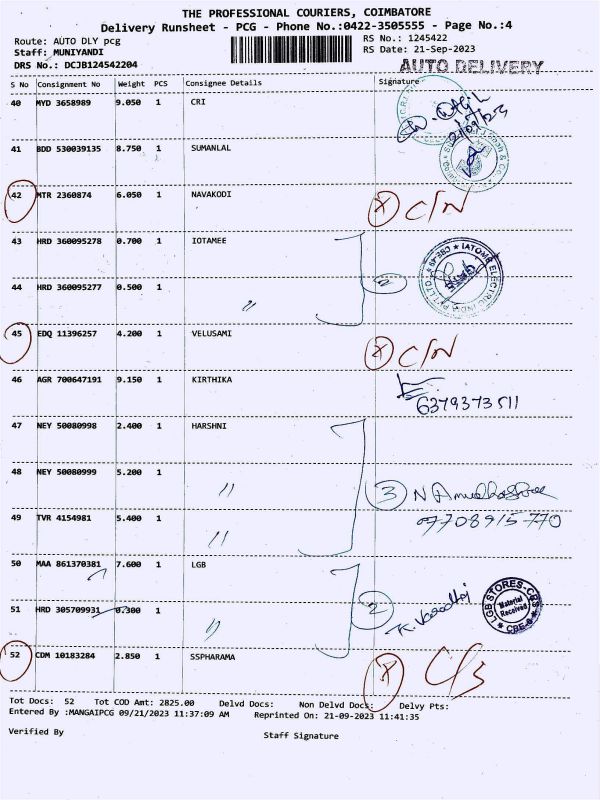 THE PROFESSIONAL COURIERS, COIMBATORE
Delivery Runsheet - PCG - Phone No.:0422-3505555 - Page No.:4
Route: AUTO DLY pcg
Staff: MUNIYANDI
DRS No.: DCJB124542204
RS No.: 1245422
RS Date: 21-Sep-2023
AUTO DELIVERY
S No Consignment No Weight PCS Consignee Details Signature
40 MYD 3658989 9.050 1 CRI
21/09/23
41 BDD 530039135 8.750 1 SUMANLAL
42 MTR 2360874 6.050 1 NAVAKODI X C/N
43 HRD 360095278 0.700 1 IOTAMEE
44 HRD 360095277 0.500 1 " 2
IATOME ELECTRIC INDIA PVT LTD
45 EDQ 11396257 4.200 1 VELUSAMI X C/N
46 AGR 700647191 9.150 1 KIRTHIKA
6379373511
47 NEY 50080998 2.400 1 HARSHNI
48 NEY 50080999 5.200 1 " 3 N
49 TVR 4154981 5.400 1 " 97708915770
50 MAA 861370381 7.600 1 LGB
LGB STORES-CBS
Material Received
CBE-6
51 HRD 305709931 0.300 1 " 2 K.
52 CDM 10183284 2.850 1 SSPHARAMA X C/S
Tot Docs: 52 Tot COD Amt: 2825.00 Delvd Docs: Non Delvd Docs: Delvy Pts:
Entered By :MANGAIPCG 09/21/2023 11:37:09 AM Reprinted On: 21-09-2023 11:41:35
Verified By Staff Signature